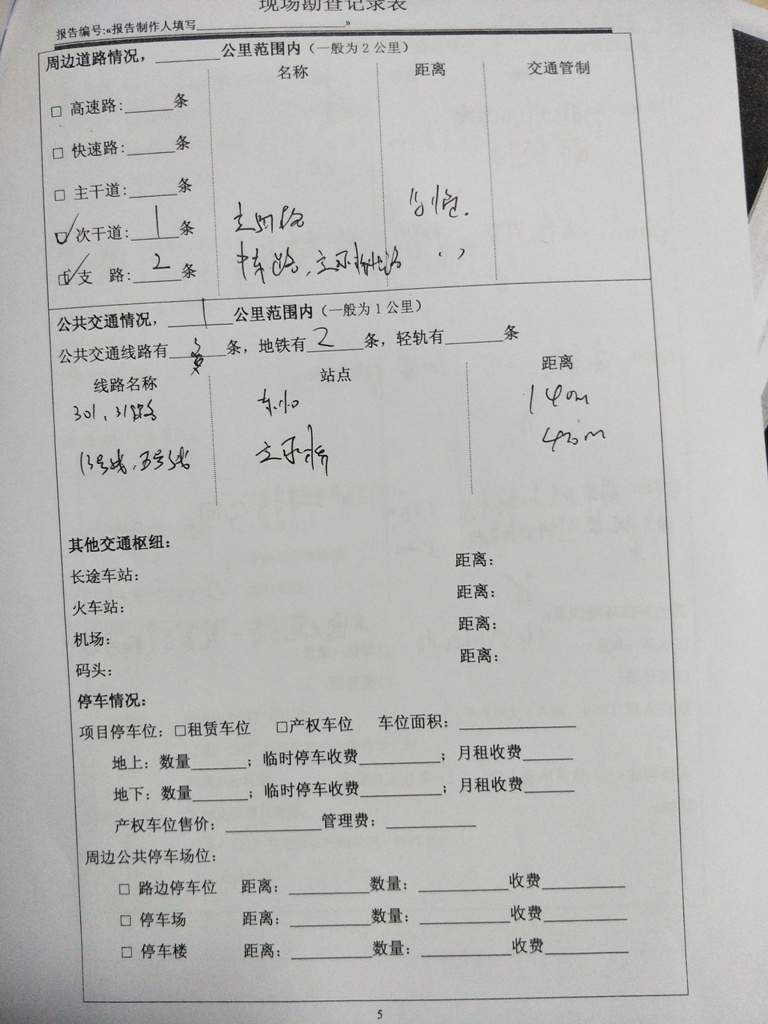 现场勘查记录表
报告编号:«报告制作人填写____________________»
周边道路情况，______公里范围内（一般为2公里）
名称 距离 交通管制
□ 高速路:_____条
□ 快速路:_____条
□ 主干道:_____条
☑ 次干道:1条
☑ 支 路:2条
公共交通情况，1公里范围内（一般为1公里）
公共交通线路有____条，地铁有2条，轻轨有_____条
线路名称 站点 距离
301、 140m
13号线、五号线 立水桥 420m
其他交通枢纽:
长途车站: 距离:
火车站: 距离:
机场: 距离:
码头: 距离:
停车情况:
项目停车位: □租赁车位 □产权车位 车位面积: ___________
地上: 数量_____; 临时停车收费_______; 月租收费_____
地下: 数量_____; 临时停车收费_______; 月租收费_____
产权车位售价: _________管理费: _________
周边公共停车场位:
□ 路边停车位 距离: ________数量: ________收费________
□ 停车场 距离: ________数量: ________收费________
□ 停车楼 距离: ________数量: ________收费________
5